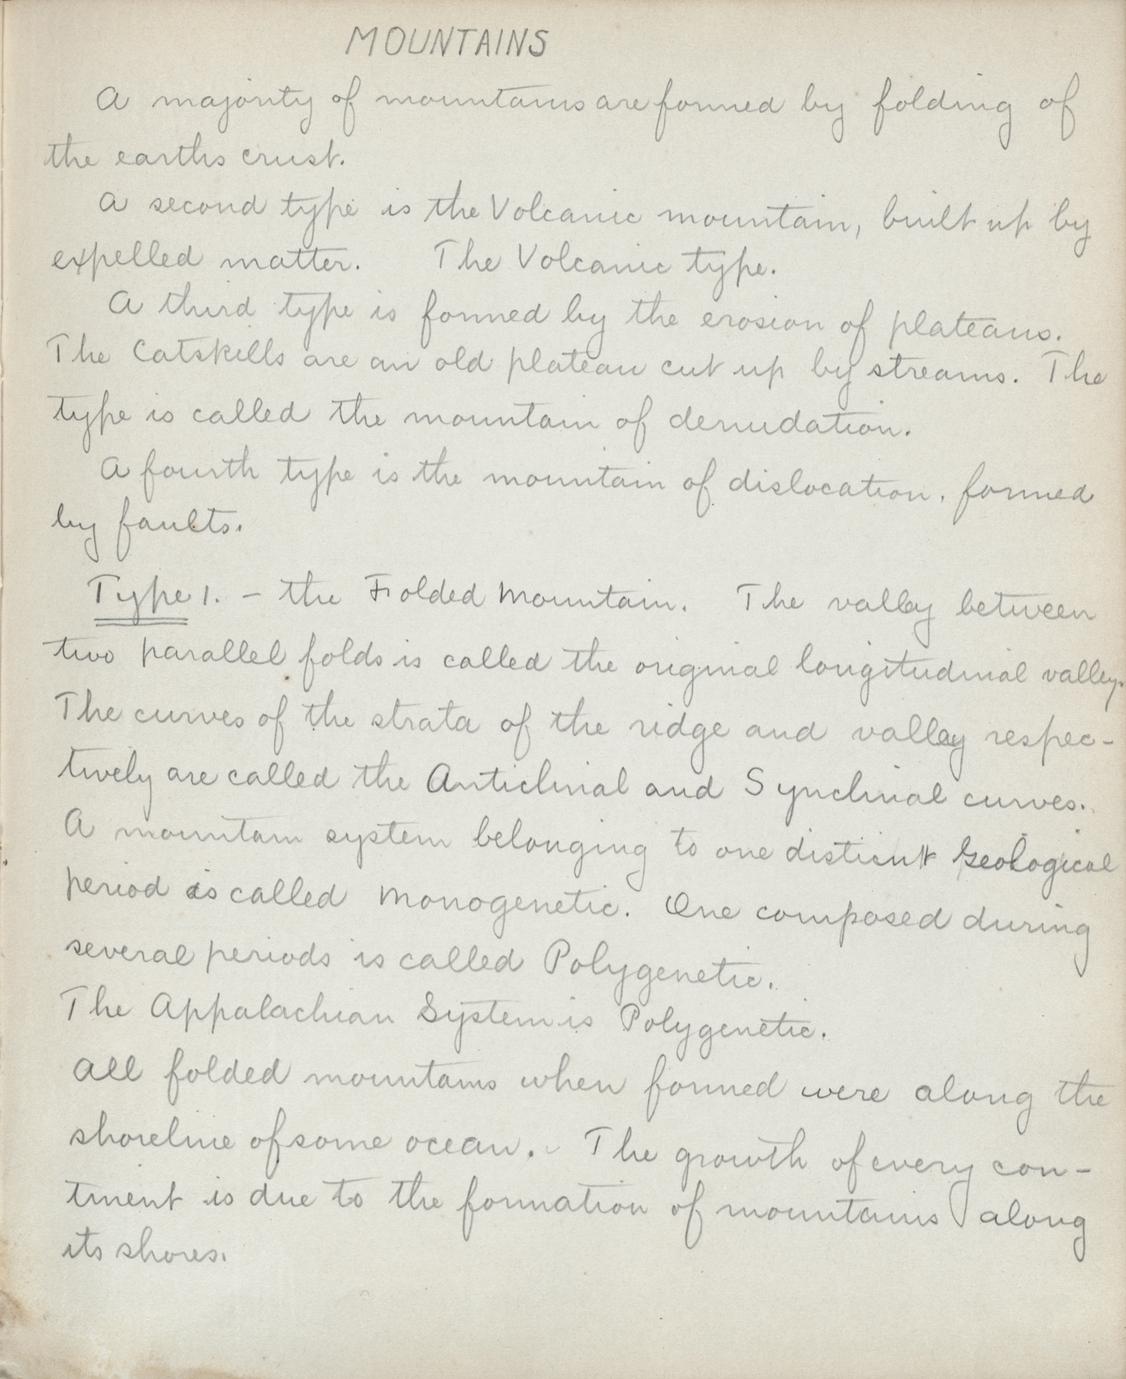 MOUNTAINS
A majority of mountains are formed by folding of
the earths crust.
A second type is the Volcanic mountain, built up by
expelled matter. The Volcanic type.
A third type is formed by the erosion of plateaus.
The Catskills are an old plateau cut up by streams. The
type is called the mountain of denudation.
A fourth type is the mountain of dislocation, formed
by faults.
Type 1. - the Folded Mountain. The valley between
two parallel folds is called the original longitudinal valley.
The curves of the strata of the ridge and valley respec-
tively are called the Anticlinal and Synclinal curves.
A mountain system belonging to one Geological
period is called Monogenetic. One composed during
several periods is called Polygenetic.
The Appalachian System is Polygenetic.
All folded mountains when formed were along the
shoreline of some ocean. The growth of every con-
tinent is due to the formation of mountains along
its shores.